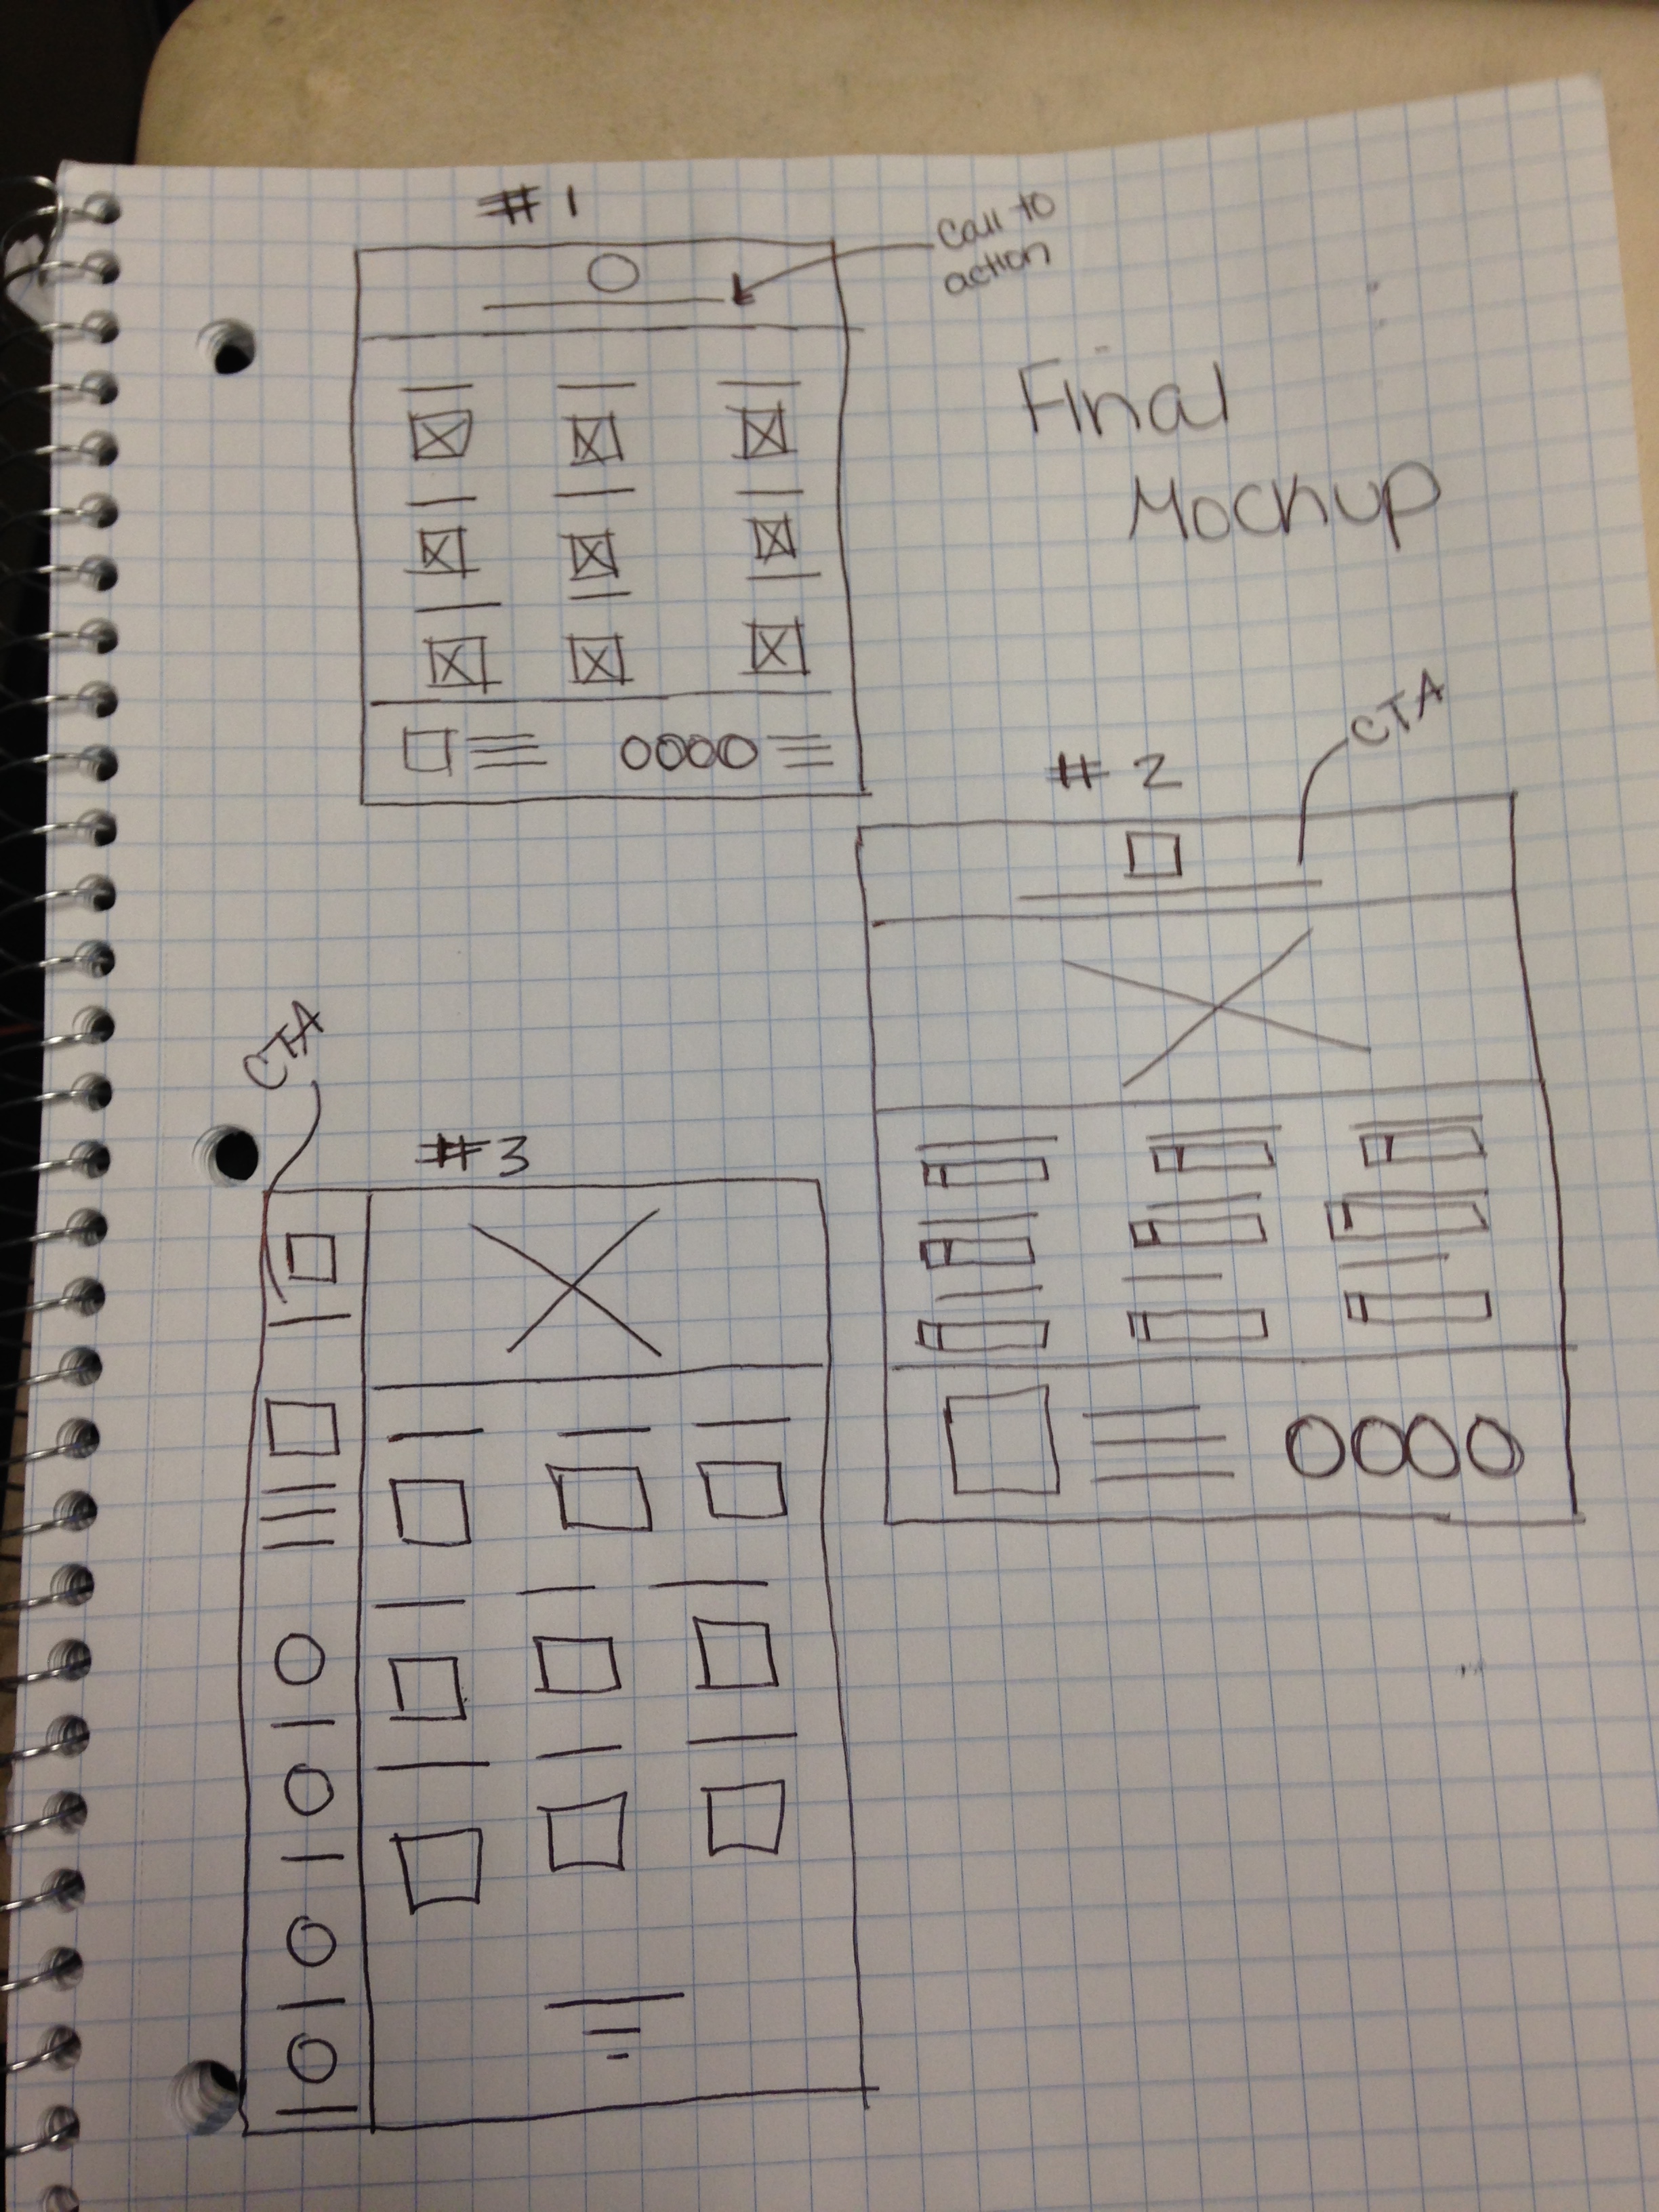 #1
Call to
action
Final
Mockup
CTA
#2
CTA
#3